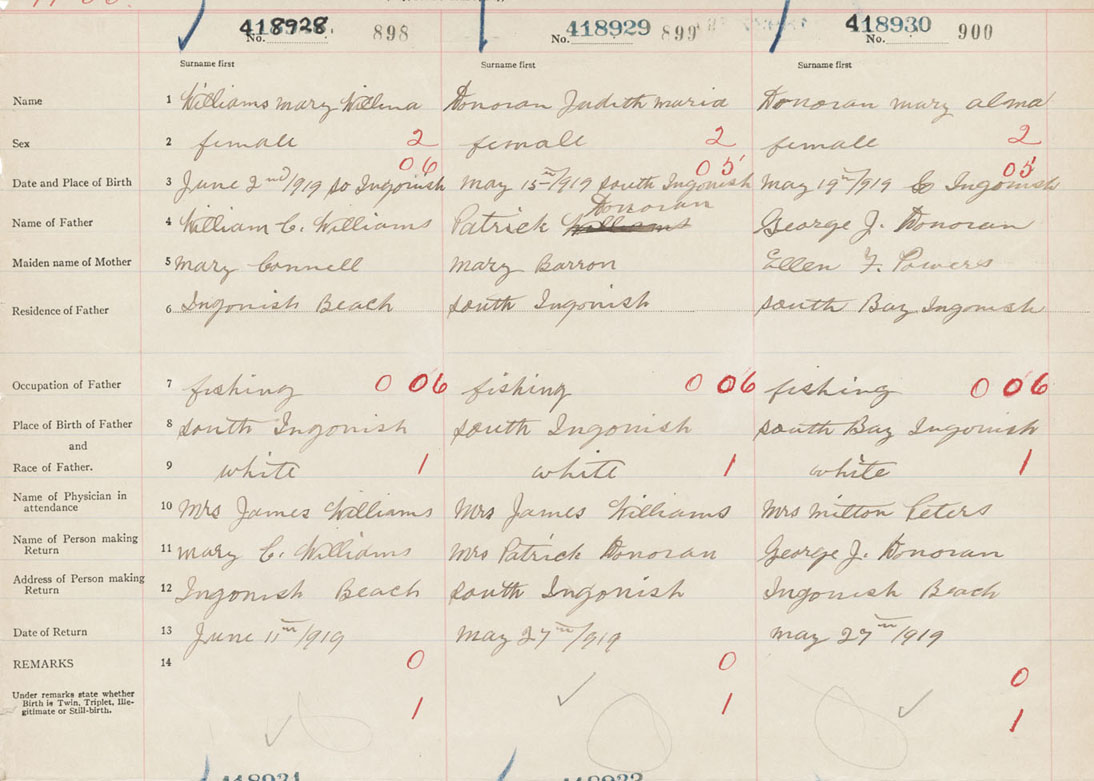 418928 418929 418930
No. 898 No. 899 No. 900
Surname first Surname first Surname first
Name 1 Williams mary Willina Donovan Judith maria Donovan mary alma
Sex 2 female 2 female 2 female 2
06 05 05
Date and Place of Birth 3 June 2nd/1919 so Ingonish may 15th/1919 south Ingonish may 19th/1919 Ingonish
Donovan
Name of Father 4 William C. Williams Patrick Williams George J. Donovan
Maiden name of Mother 5 mary Connell mary Barron Ellen F. Powers
Residence of Father 6 Ingonish Beach south Ingonish south Bay Ingonish
Occupation of Father 7 fishing 0 06 fishing 0 06 fishing 0 06
Place of Birth of Father 8 south Ingonish south Ingonish south Bay Ingonish
and
Race of Father. 9 white 1 white 1 white 1
Name of Physician in
attendance 10 Mrs James Williams Mrs James Williams Mrs Milton Peters
Name of Person making
Return 11 mary C. Williams Mrs Patrick Donovan George J. Donovan
Address of Person making
Return 12 Ingonish Beach south Ingonish Ingonish Beach
Date of Return 13 June 11th/1919 may 27th/1919 may 27th/1919
REMARKS 14 0 0 0
Under remarks state whether
Birth is Twin, Triplet, Ille-
gitimate or Still-birth. 1 1 1